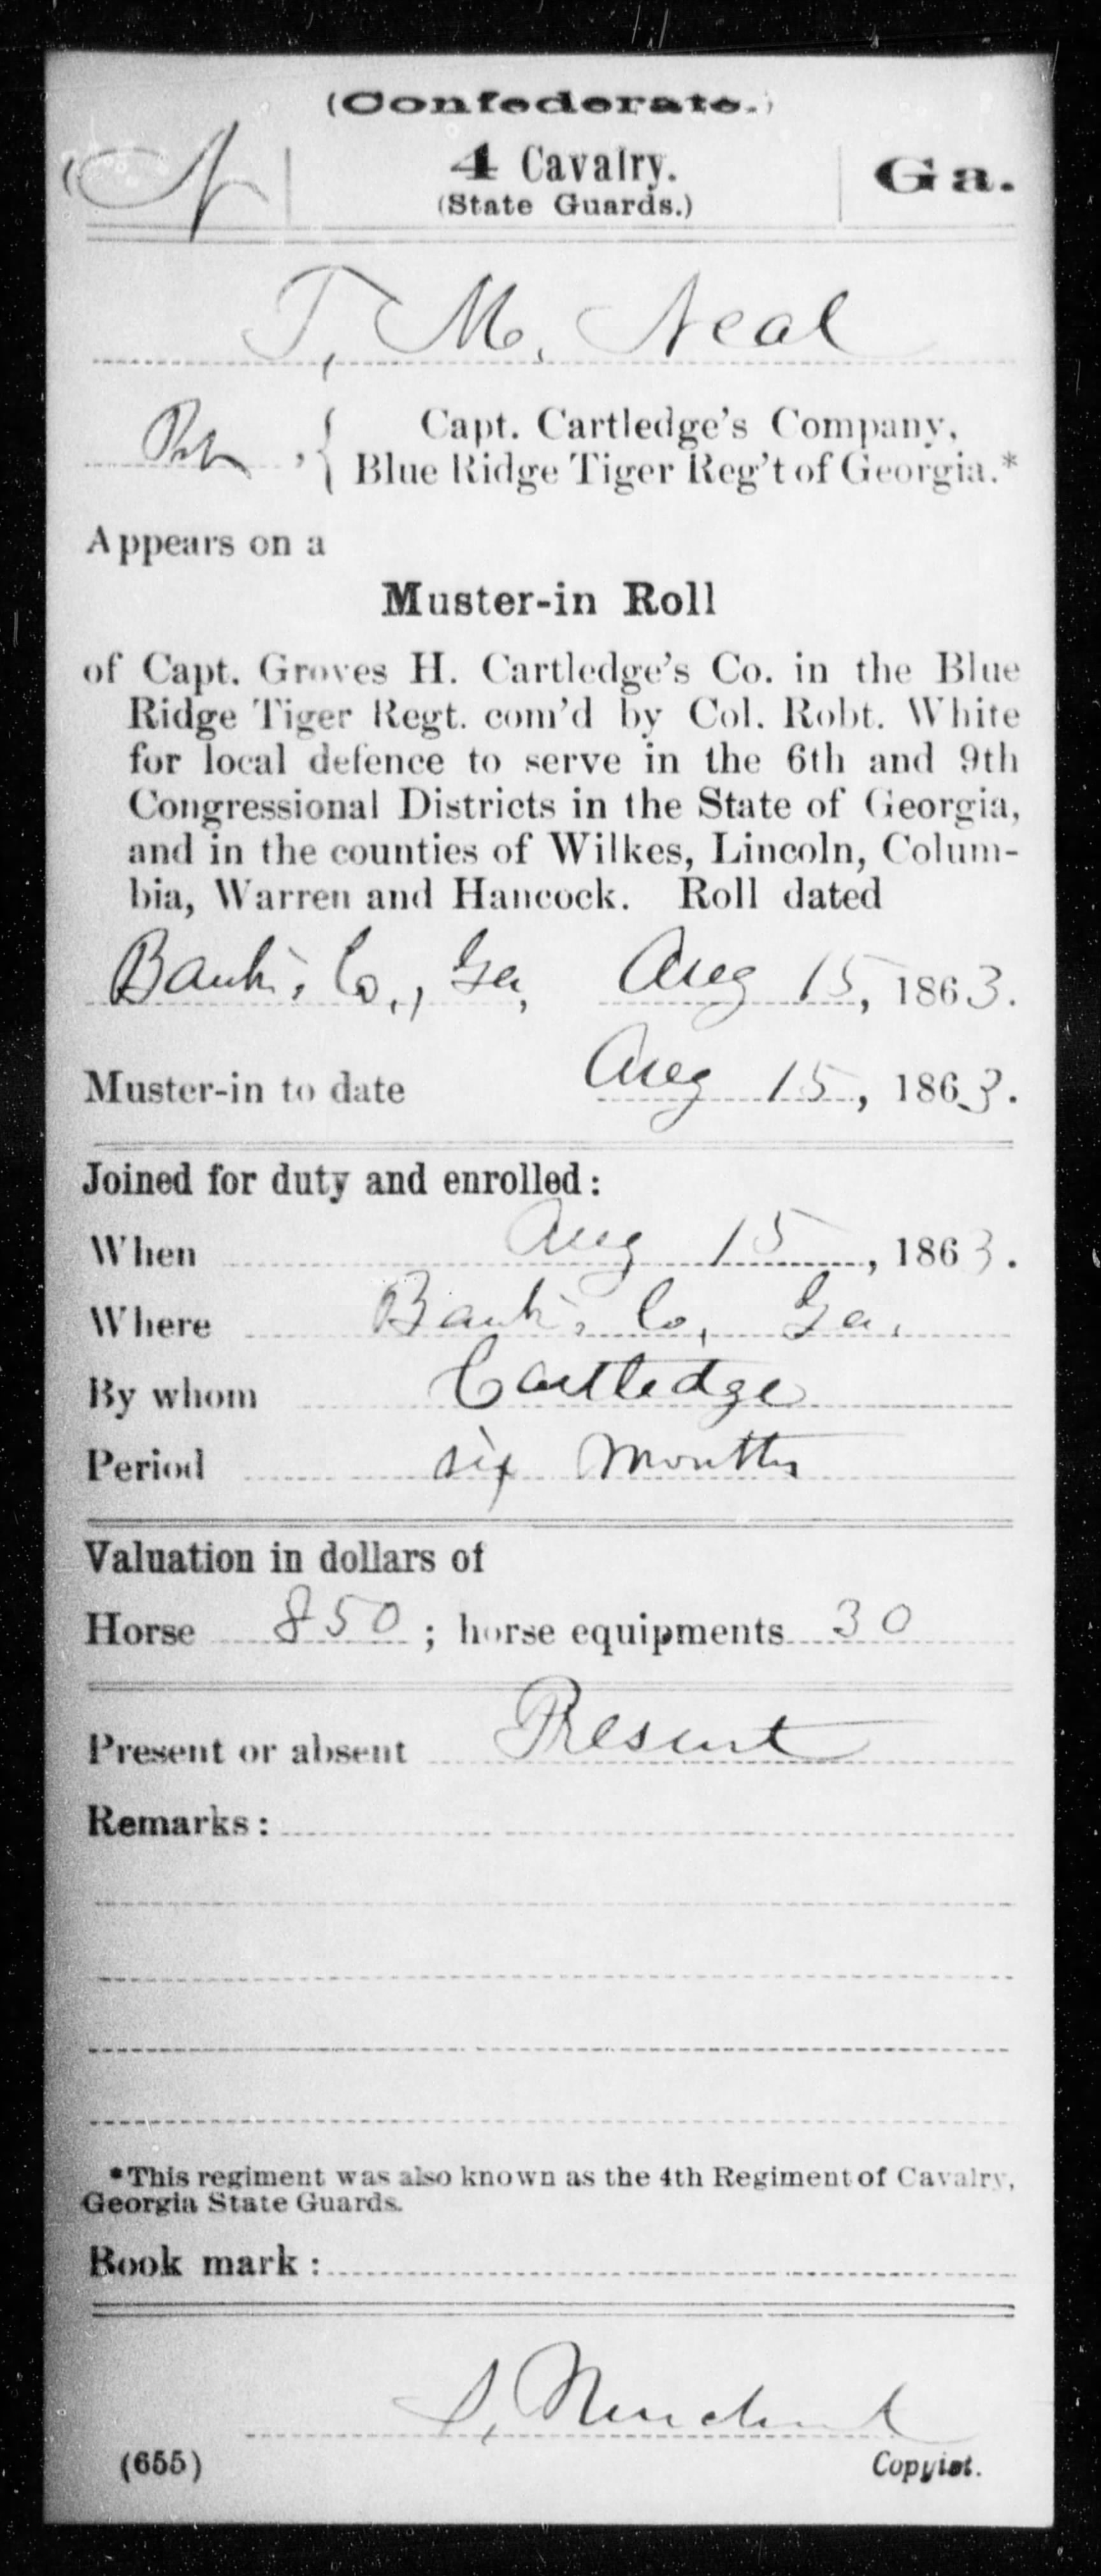 (Confederate.)
N | 4 Cavalry. | Ga.
(State Guards.)
T. M. Neal
Pvt, { Capt. Cartledge's Company,
Blue Ridge Tiger Reg't of Georgia.*
Appears on a
Muster-in Roll
of Capt. Groves H. Cartledge's Co. in the Blue
Ridge Tiger Regt. com'd by Col. Robt. White
for local defence to serve in the 6th and 9th
Congressional Districts in the State of Georgia,
and in the counties of Wilkes, Lincoln, Colum-
bia, Warren and Hancock. Roll dated
Banks Co., Ga, Aug 15, 1863.
Muster-in to date Aug 15, 1863.
Joined for duty and enrolled:
When Aug 15, 1863.
Where Banks Co, Ga.
By whom Cartledge
Period six months
Valuation in dollars of
Horse 850; horse equipments 30
Present or absent Present
Remarks:
*This regiment was also known as the 4th Regiment of Cavalry,
Georgia State Guards.
Book mark:
(655) Copyist.